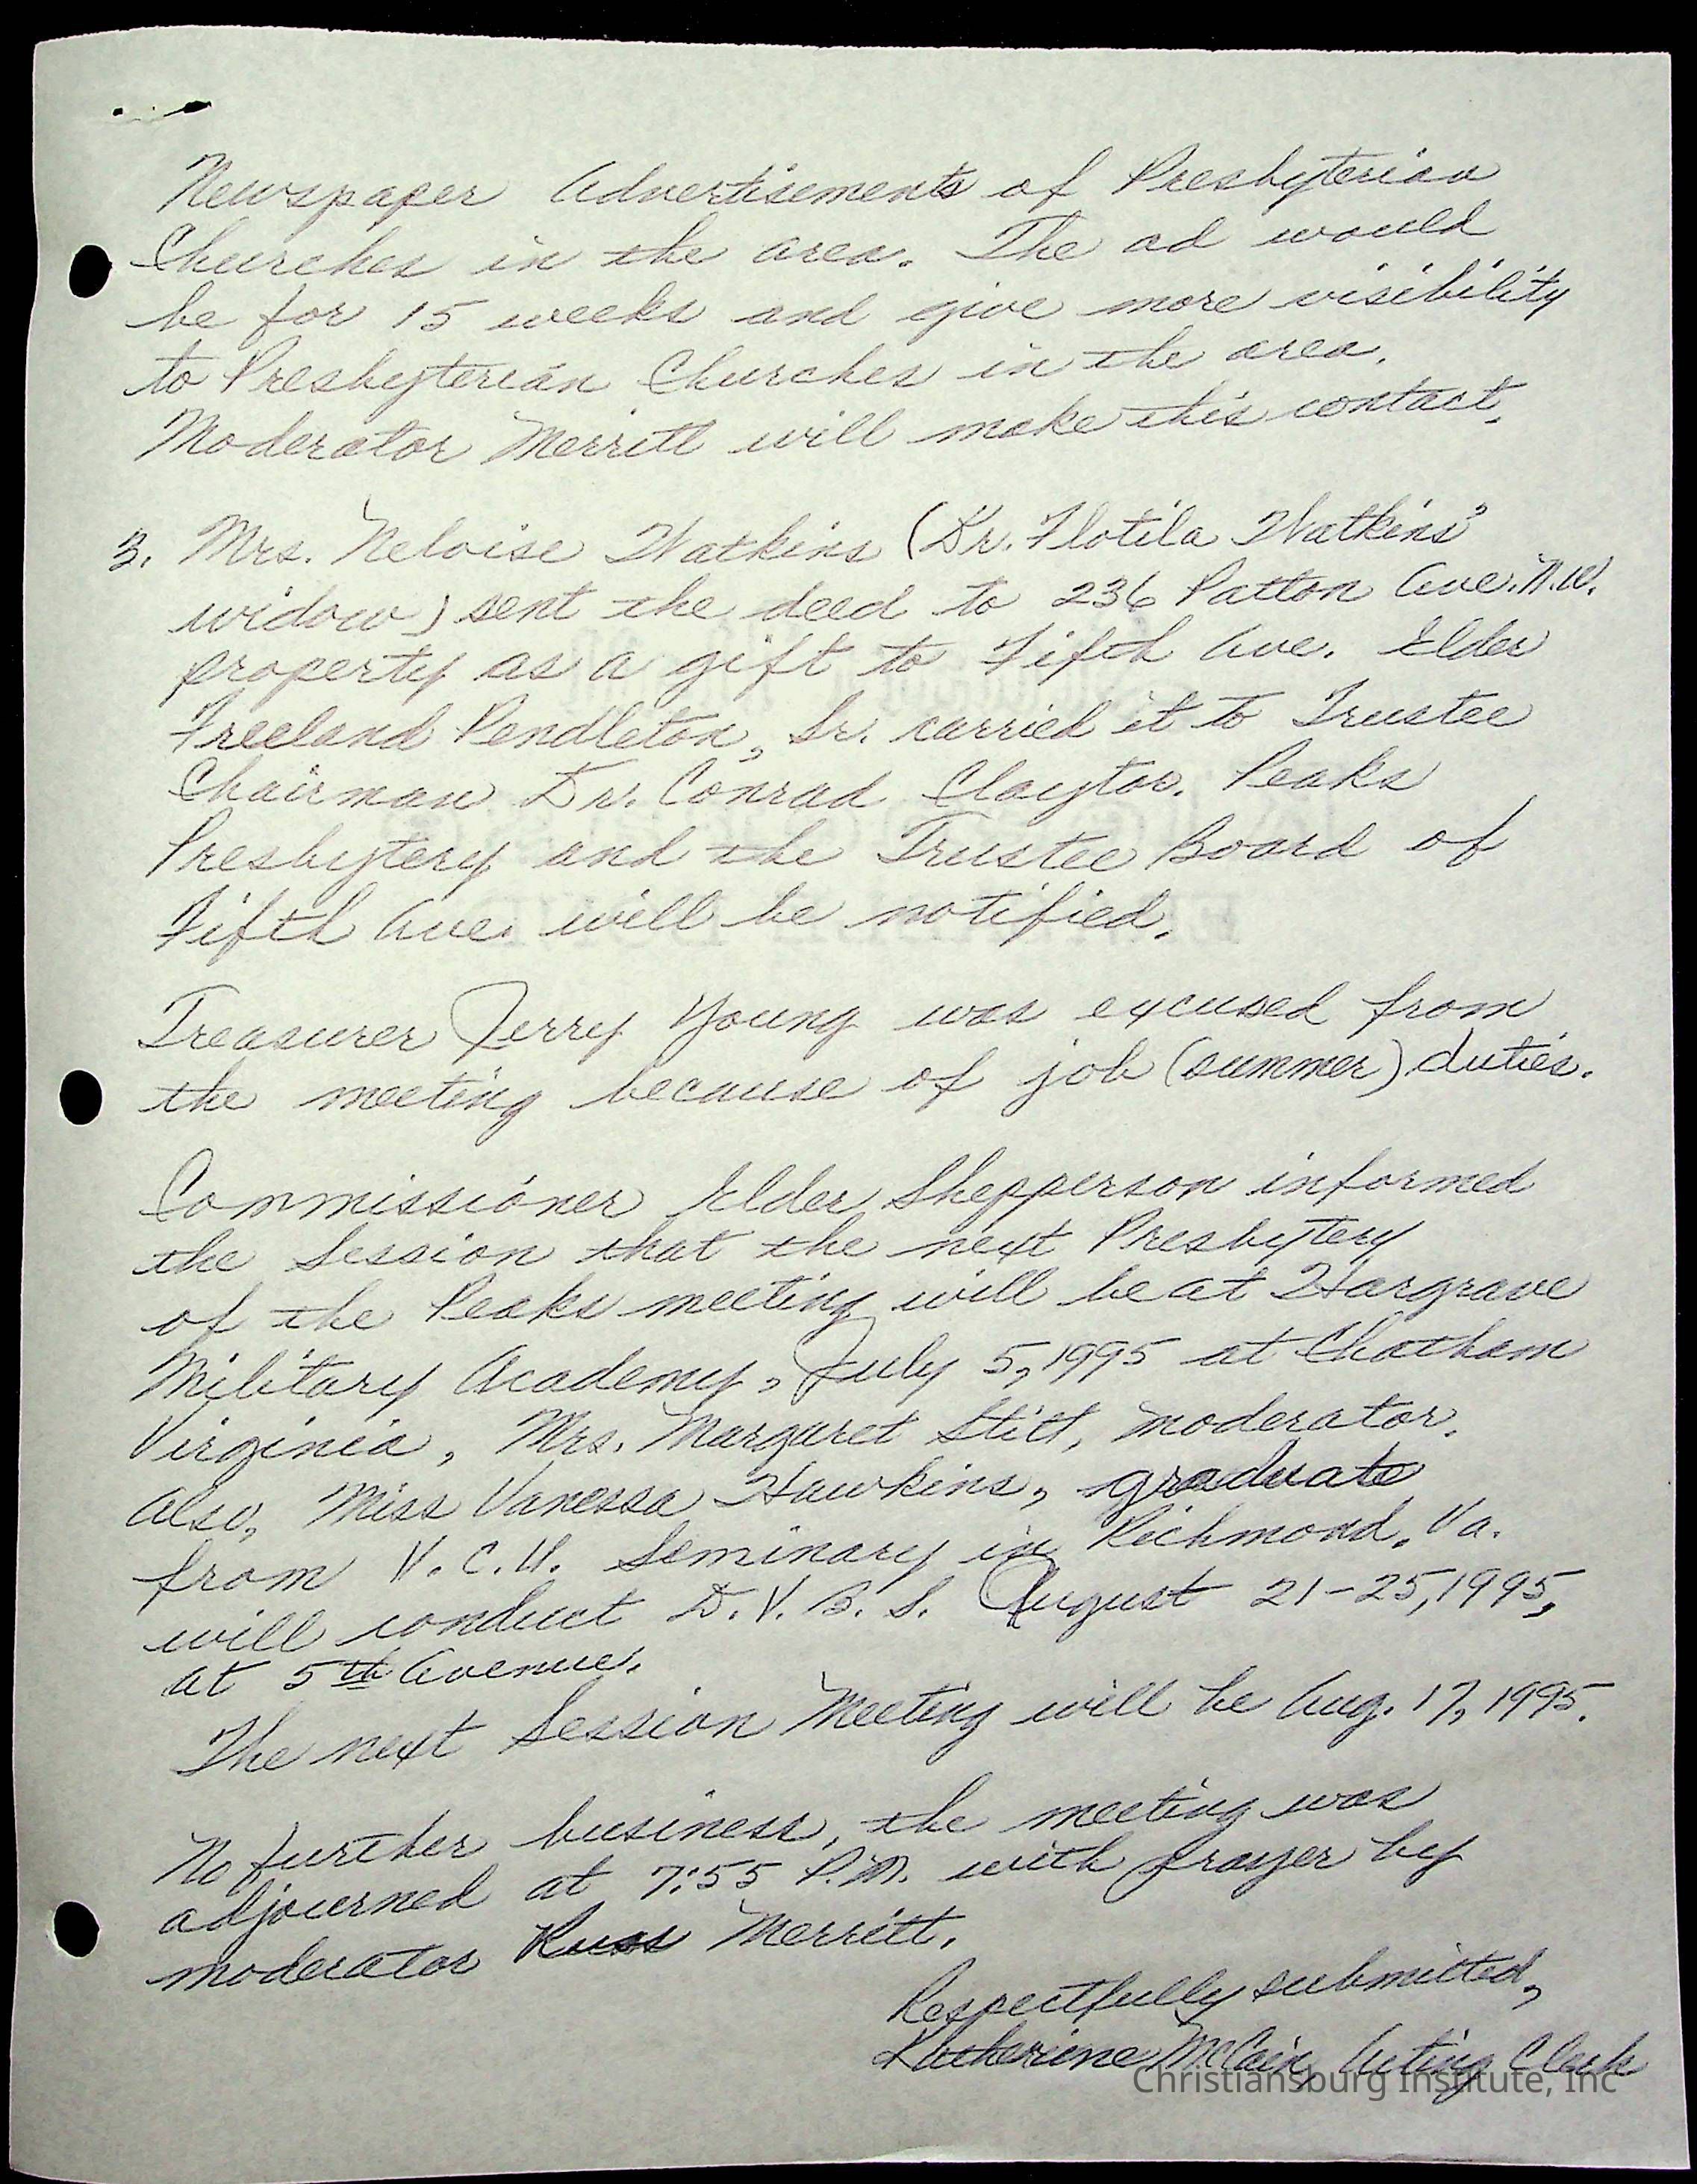 Newspaper Advertisements of Presbyterian
Churches in the area. The ad would
be for 15 weeks and give more visibility
to Presbyterian Churches in the area.
Moderator Merritt will make this contact.
3. Mrs. Neloise Watkins (Dr. Flotila Watkins'
widow) sent the deed to 236 Patton Ave. N.W.
property as a gift to Fifth Ave. Elder
Freeland Pendleton, Sr. carried it to Trustee
Chairman Dr. Conrad Claytor. Peaks
Presbytery and the Trustee Board of
Fifth Ave. will be notified.
Treasurer Jerry Young was excused from
the meeting because of job (summer) duties.
Commissioner Elder Shepperson informed
the Session that the next Presbytery
of the Peaks meeting will be at Hargrave
Military Academy, July 5, 1995 at Chatham
Virginia, Mrs. Margaret Stitt, moderator.
Also, Miss Vanessa Hawkins, graduate
from V.C.U. Seminary in Richmond, Va.
will conduct D.V.B.S. August 21-25, 1995,
at 5th Avenue.
The next Session Meeting will be Aug. 17, 1995.
No further business, the meeting was
adjourned at 7:55 P.M. with prayer by
moderator Russ Merritt.
Respectfully submitted,
Katherine McCain, Acting Clerk
Christiansburg Institute, Inc